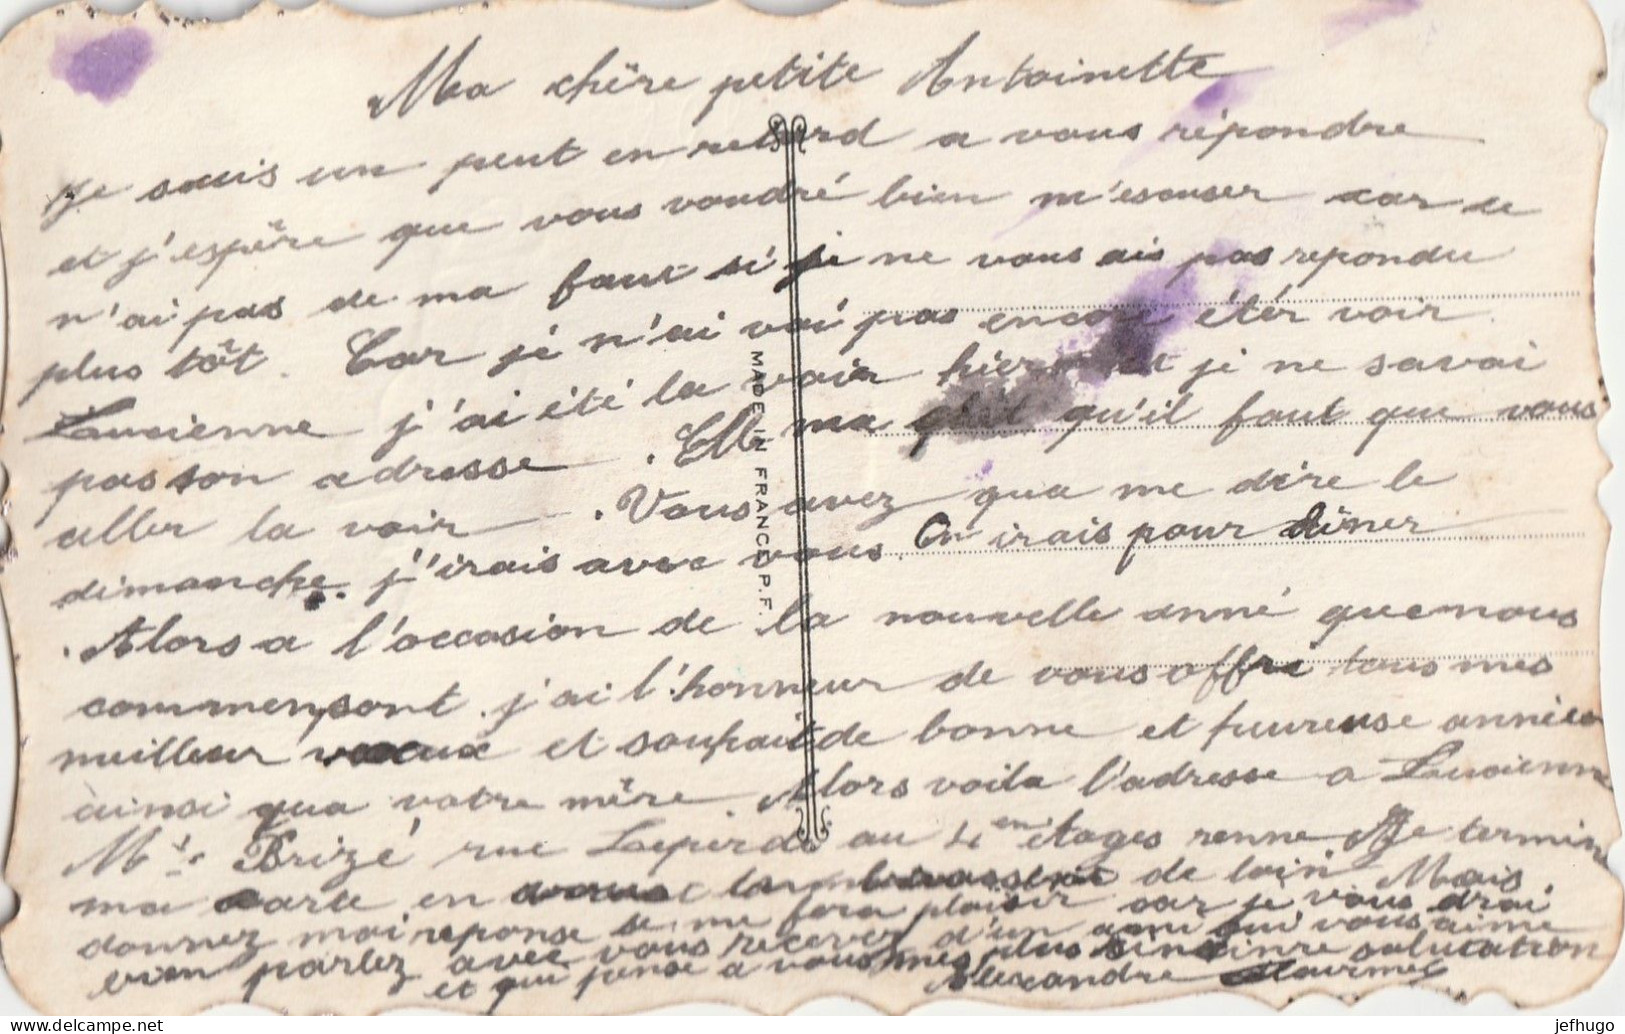 Ma chère petite Antoinette
Je suis un peut en retard a vous répondre
et j'espère que vous voudré bien m'escuser car se
n'ai pas de ma faut si je ne vous ais pas repondu
plus tôt. Car je n'ai pas encore étér voir
Lucienne j'ai été la voir hier et je ne savai
pas son adresse. Elle ma qu'il faut que vous
aller la voir. Vous avez qua me dire le
dimanche. j'irais avec vous. On irais pour diner
Alors a l'occasion de la nouvelle anné que nous
commensont j'ai l'honneur de vous offri tous mes
meilleur vœux et souhait de bonne et heureuse année
ainsi qua votre mère. Alors voila l'adresse a Lucienne
Brizé rue au 4 en étages renne Je termine
ma carte en vous embrassent de loin Mais
donnez moi reponse se me fera plaisir car je vous drai
bien parlez avec vous recevez d'un ami qui vous aime
et qui panse a vous mes plus sincinre salutation
Alexandre
MADE IN FRANCE P.F.
jefhugo